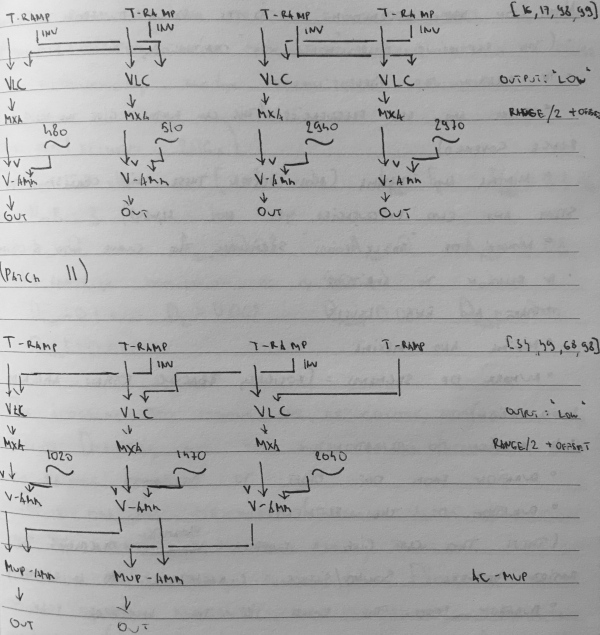 T-RAMP T-RAMP T-RAMP T-RAMP [16,17,98,99]
INV INV INV INV
VLC VLC VLC VLC OUTPUT: "LOW"
MXA MXA MXA MXA RANGE/2 + OFFSET
480 510 2940 2970
V V V V
V-AMM V-AMM V-AMM V-AMM
OUT OUT OUT OUT
(PATCH 11)
T-RAMP T-RAMP T-RAMP T-RAMP [34,49,68,98]
INV INV
VLC VLC VLC OUTPUT: "LOW"
MXA MXA MXA RANGE/2 + OFFSET
1020 1470 2040
V V V
V-AMM V-AMM V-AMM
MUP-AMM MUP-AMM AC-MUP
OUT OUT